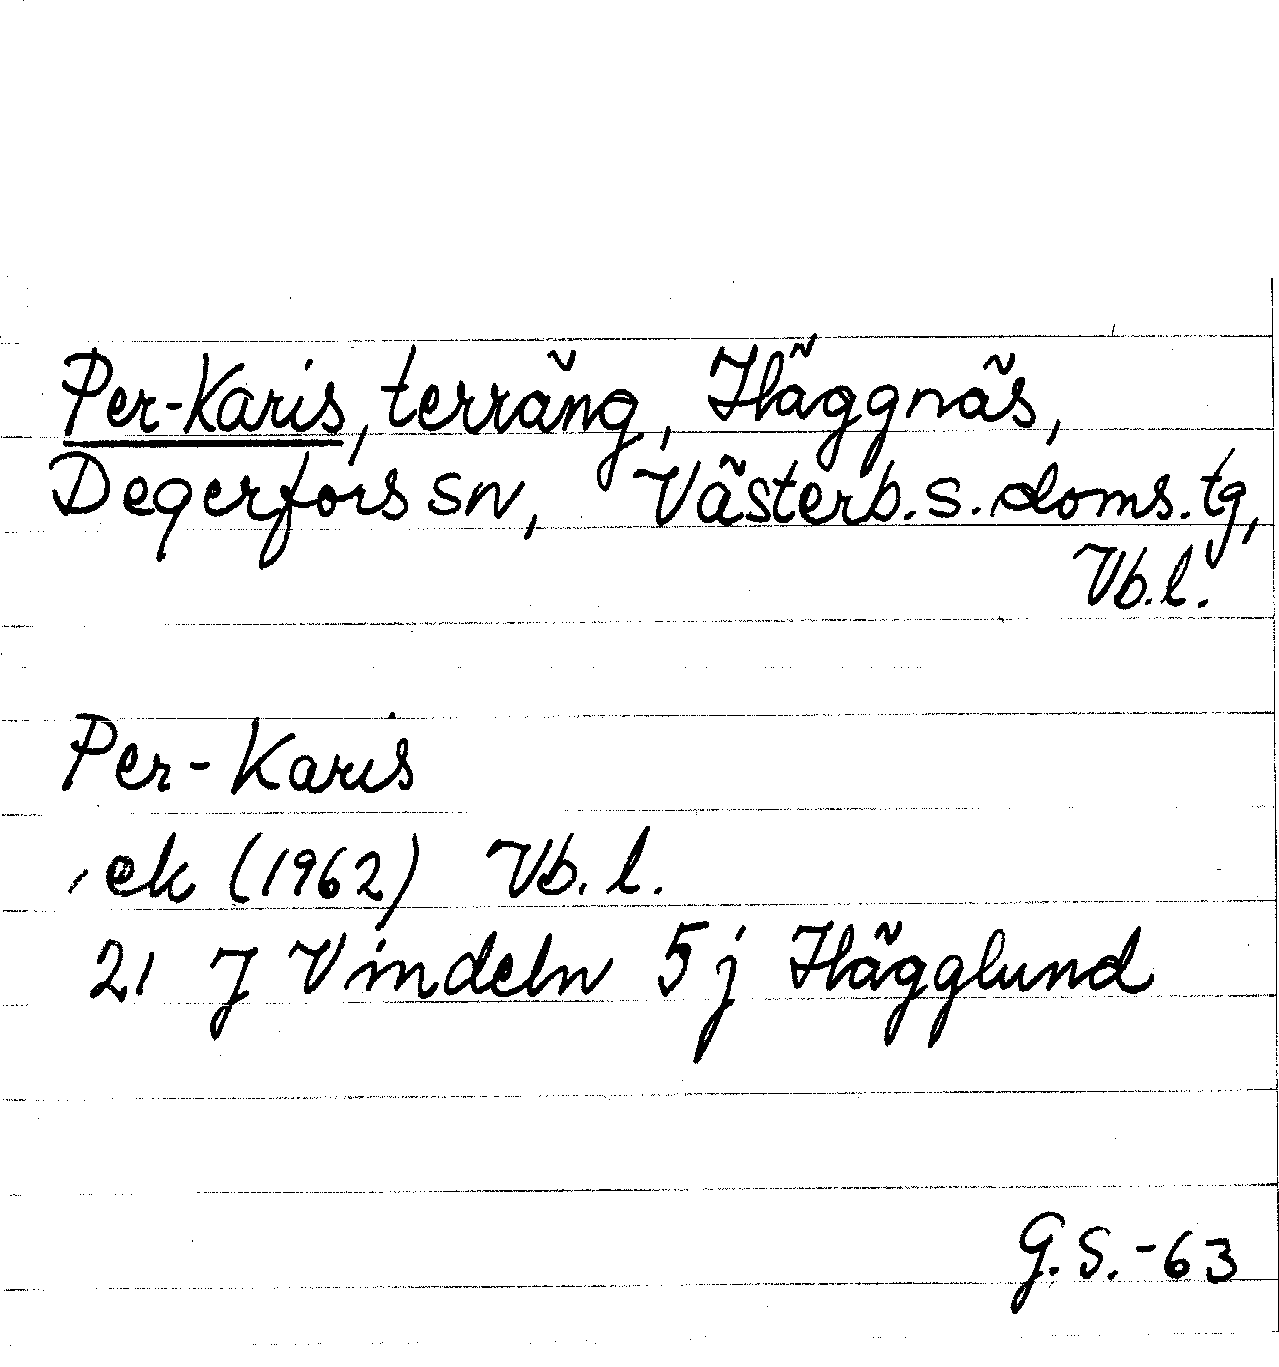 Per-Karis, terräng, Häggnäs,
Degerfors sn, Västerb. s. doms. tg,
Vb. l.
Per-Karis
ek (1962) Vb. l.
21 J Vindeln 5 j Hägglund
G.S. -63